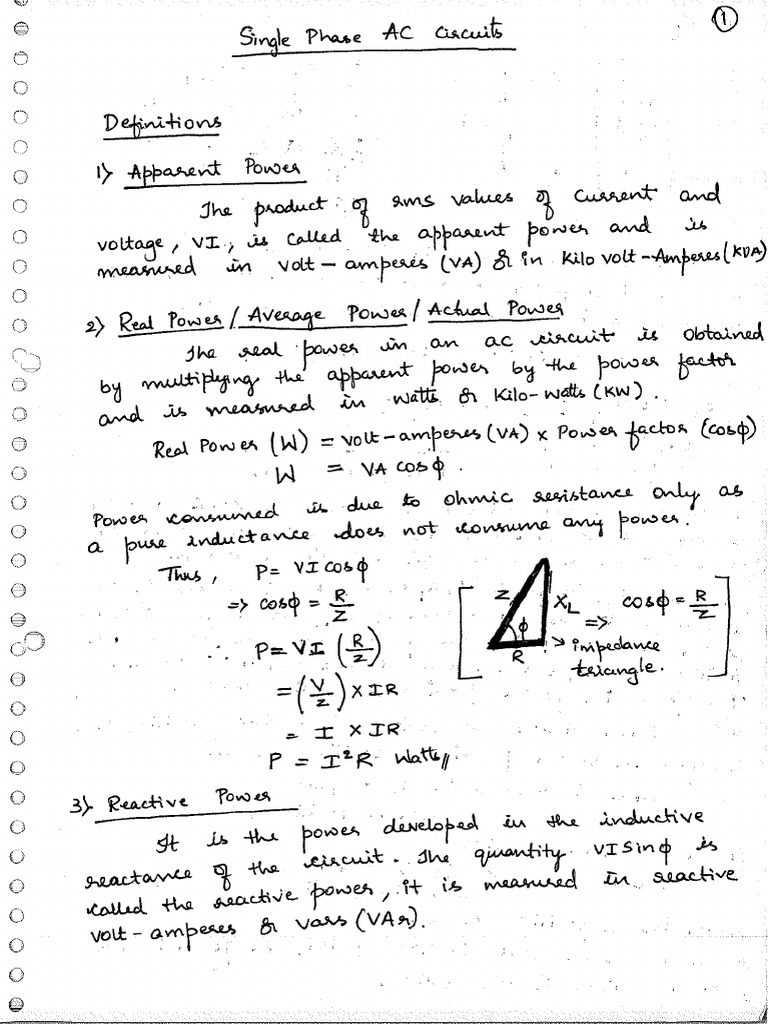 1
Single Phase AC Circuits
Definitions
1) Apparent Power
The product of rms values of current and
voltage, VI, is called the apparent power and is
measured in volt-amperes (VA) or in Kilo volt-Amperes (KVA)
2) Real Power / Average Power / Actual Power
The real power in an ac circuit is obtained
by multiplying the apparent power by the power factor
and is measured in watts or Kilo-watts (KW).
Real Power (W) = volt-amperes (VA) x Power factor (cosϕ)
W = VA cosϕ.
Power consumed is due to ohmic resistance only as
a pure inductance does not consume any power.
Thus, P = VI cosϕ
=> cosϕ = R/Z
∴ P = VI (R/Z)
= (V/Z) x IR
= I x IR
P = I²R Watts//
[ Z ϕ R X_L => cosϕ = R/Z
impedance
triangle. ]
3) Reactive Power
It is the power developed in the inductive
reactance of the circuit. The quantity VI sinϕ is
called the reactive power, it is measured in reactive
volt-amperes or vars (VAr).